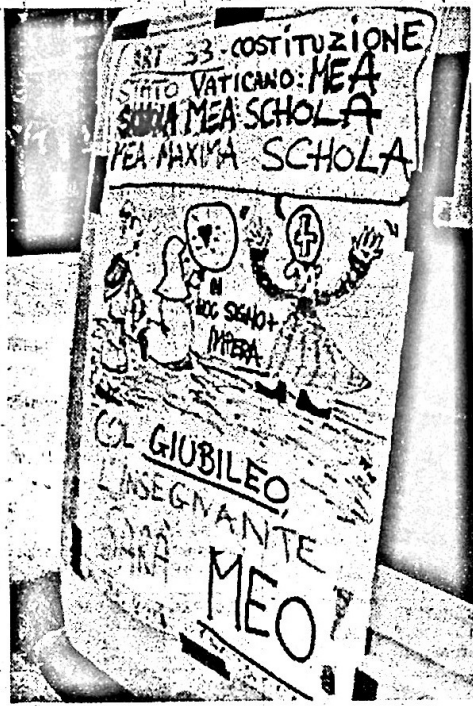 ART 33 - COSTITUZIONE
STATO VATICANO: MEA
MEA SCHOLA
MEA MAXIMA SCHOLA
IN
HOC SIGNO +
IMPERA
COL GIUBILEO,
L'INSEGNANTE
SARÀ
MEO